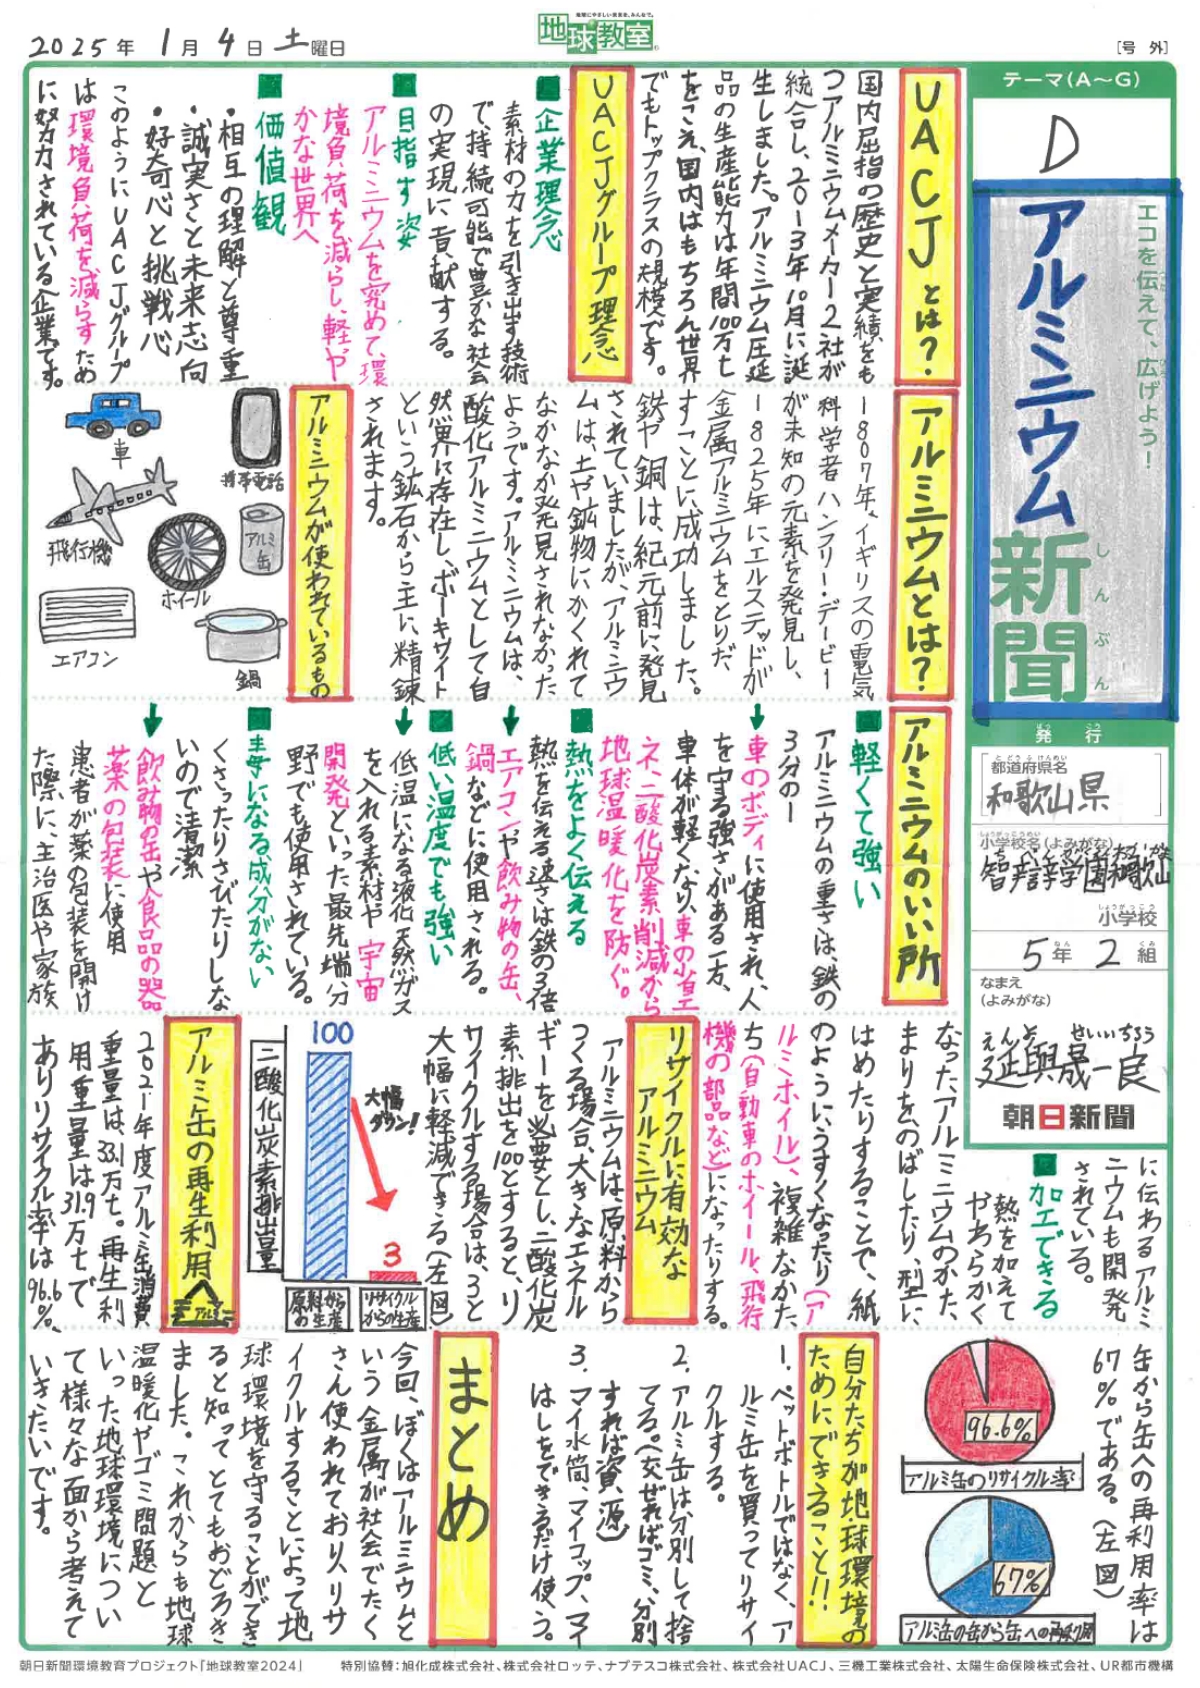 2025年 1月 4日 土曜日
地球にやさしい未来を、みんなで。
地球教室
[号 外]
テーマ(A〜G)
D
エコを伝えて、広げよう!
アルミニウム
新聞
しんぶん
発行
はっこう
都道府県名
とどうふけんめい
和歌山県
小学校名(よみがな)
しょうがっこうめい
智辯学園和歌山
小学校
しょうがっこう
5年 2組
ねん くみ
なまえ
(よみがな)
えんよ せいいちろう
延與晟一良
朝日新聞
UACJとは?
国内屈指の歴史と実績をも
つアルミニウムメーカー2社が
統合し、2013年10月に誕
生しました。アルミニウム圧延
品の生産能力は年間100万t
をこえ、国内はもちろん世界
でもトップクラスの規模です。
UACJグループ理念
■企業理念
素材の力を引き出す技術
で持続可能で豊かな社会
の実現に貢献する。
■目指す姿
アルミニウムを究めて、環
境負荷を減らし、軽や
かな世界へ
■価値観
・相互の理解と尊重
・誠実さと未来志向
・好奇心と挑戦心
このようにUACJグループ
は環境負荷を減らすため
に努力されている企業です。
アルミニウムとは?
1807年、イギリスの電気
科学者ハンフリー・デービー
が未知の元素を発見し、
1825年にエルステッドが
金属アルミニウムをとりだ
すことに成功しました。
鉄や銅は、紀元前に発見
されていましたが、アルミニウ
ムは、土や鉱物にかくれて
なかなか発見されなかった
ようです。アルミニウムは、
酸化アルミニウムとして自
然界に存在し、ボーキサイト
という鉱石から主に精錬
されます。
アルミニウムが使われているもの
車
携帯電話
飛行機
ホイール
アルミ缶
エアコン
鍋
アルミニウムのいい所
■軽くて強い
アルミニウムの重さは、鉄の
3分の1
↓車のボディに使用され、人
を守る強さがある一方、
車体が軽くなり、車の省エ
ネ、二酸化炭素削減から
地球温暖化を防ぐ。
■熱をよく伝える
熱を伝える速さは鉄の3倍
↓エアコンや飲み物の缶、
鍋などに使用される。
■低い温度でも強い
↓低温になる液化天然ガス
を入れる素材や宇宙
開発といった最先端分
野でも使用されている。
■毒になる成分がない
くさったりさびたりしな
いので清潔
↓飲み物の缶や食品の器
薬の包装に使用
患者が薬の包装を開け
た際に、主治医や家族
に伝わるアルミ
ニウムも開発
されている。
■加工できる
熱を加えて
やわらかく
なった、アルミニウムのかた
まりをのばしたり、型に
はめたりすることで、紙
のようにうすくなったり(ア
ルミホイル)、複雑なかた
ち(自動車のホイール、飛行
機の部品など)になったりする。
リサイクルに有効な
アルミニウム
アルミニウムは原料から
つくる場合、大きなエネル
ギーを必要とし、二酸化炭
素排出を100とすると、リ
サイクルする場合は、3と
大幅に軽減できる(左図)
二酸化炭素排出量
100
大幅ダウン!
3
原料からの生産
リサイクルからの生産
アルミ缶の再生利用へ
アルミ
2021年度アルミ缶消費
重量は、33.1万t。再生利
用重量は31.9万tで
ありリサイクル率は96.6%、
缶から缶への再利用率は
67%である。(左図)
96.6%
アルミ缶のリサイクル率
67%
アルミ缶の缶から缶への再利用
自分たちが地球環境の
ためにできること!!
1.ペットボトルではなく、ア
ルミ缶を買ってリサイ
クルする。
2.アルミ缶は分別して捨
てる。(交ぜればゴミ、分別
すれば資源)
3.マイ水筒、マイコップ、マイ
はしをできるだけ使う。
まとめ
今回、ぼくはアルミニウムと
いう金属が社会でたく
さん使われており、リサ
イクルすることによって地
球環境を守ることができ
ると知ってとてもおどろき
ました。これからも地球
温暖化やゴミ問題と
いった地球環境につい
て様々な面から考えて
いきたいです。
朝日新聞環境教育プロジェクト「地球教室2024」 特別協賛:旭化成株式会社、株式会社ロッテ、ナブテスコ株式会社、株式会社UACJ、三機工業株式会社、太陽生命保険株式会社、UR都市機構